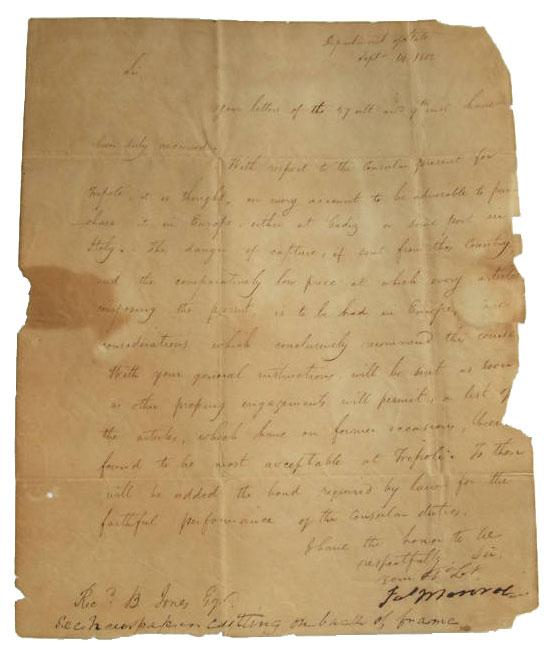 Department of State
Sept 14, 1812
Sir,
your letters of the 27 ult and 9th inst have
been duly received.
With respect to the Consular present for
Tripoli, it is thought, on every account to be adviseable to pur
chase it in Europe, either at Cadiz or some port in
Italy. The danger of capture, if sent from this Country
and the comparatively low price at which every article
composing the present, is to be had in Europe, are
considerations which conclusively recommend this course
With your general instructions, will be sent as soon
as other pressing engagements will permit, a list of
the articles, which have on former occasions, been
found to be most acceptable at Tripoli. To them
will be added the bond required by law for the
faithful performance of the Consular duties.
I have the honor to be
respectfully Sir
your Ob St
Jas Monroe
Ricd B Jones Esqr.
See newspaper cutting on back of frame